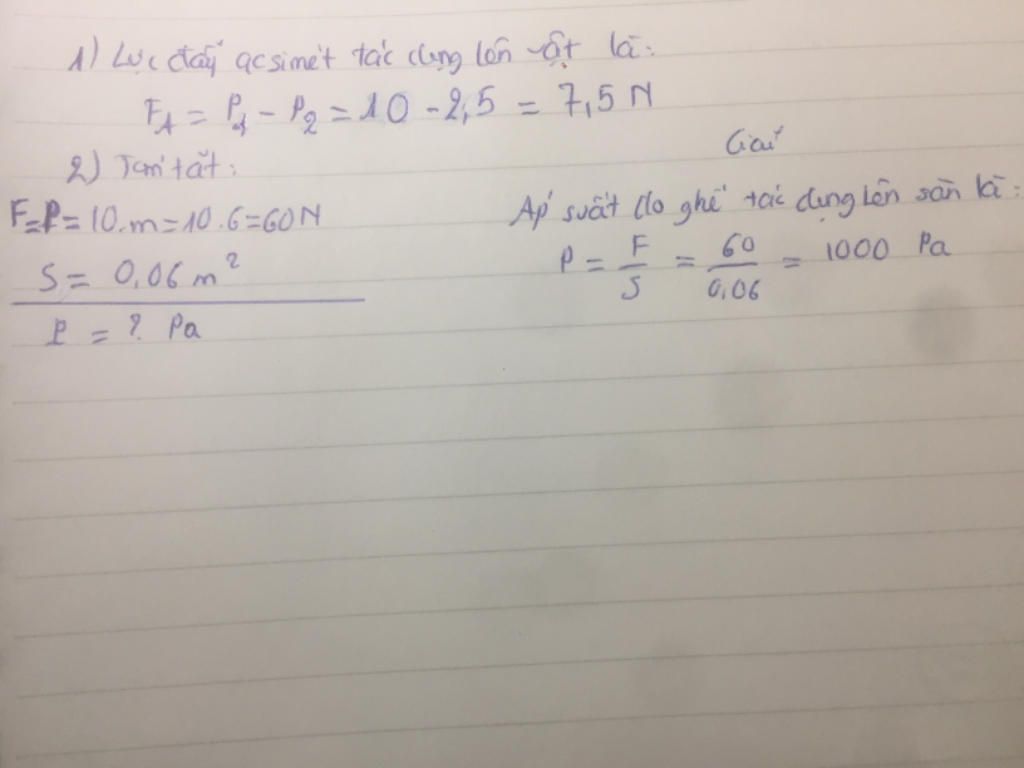 1) Lực đẩy acsimét tác dụng lên vật là:
F_A = P_1 - P_2 = 10 - 2,5 = 7,5 N
2) Tóm tắt:
F=P = 10.m = 10.6 = 60N
S = 0,06 m²
P = ? Pa
Giải
Áp suất do ghế tác dụng lên sàn là:
P = F/S = 60/0,06 = 1000 Pa